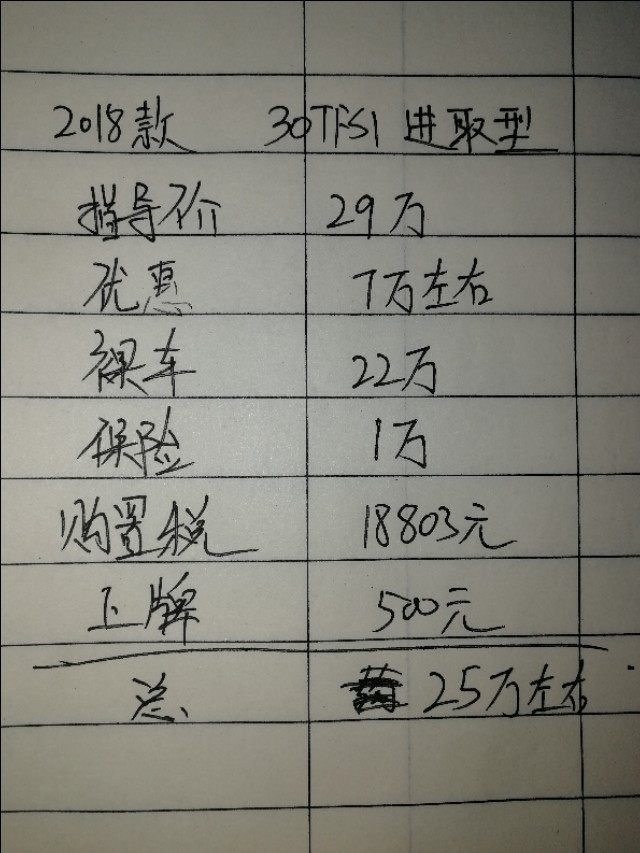 2018款 30TFSI 进取型
指导价 29万
优惠 7万左右
裸车 22万
保险 1万
购置税 18803元
上牌 500元
总 25万左右